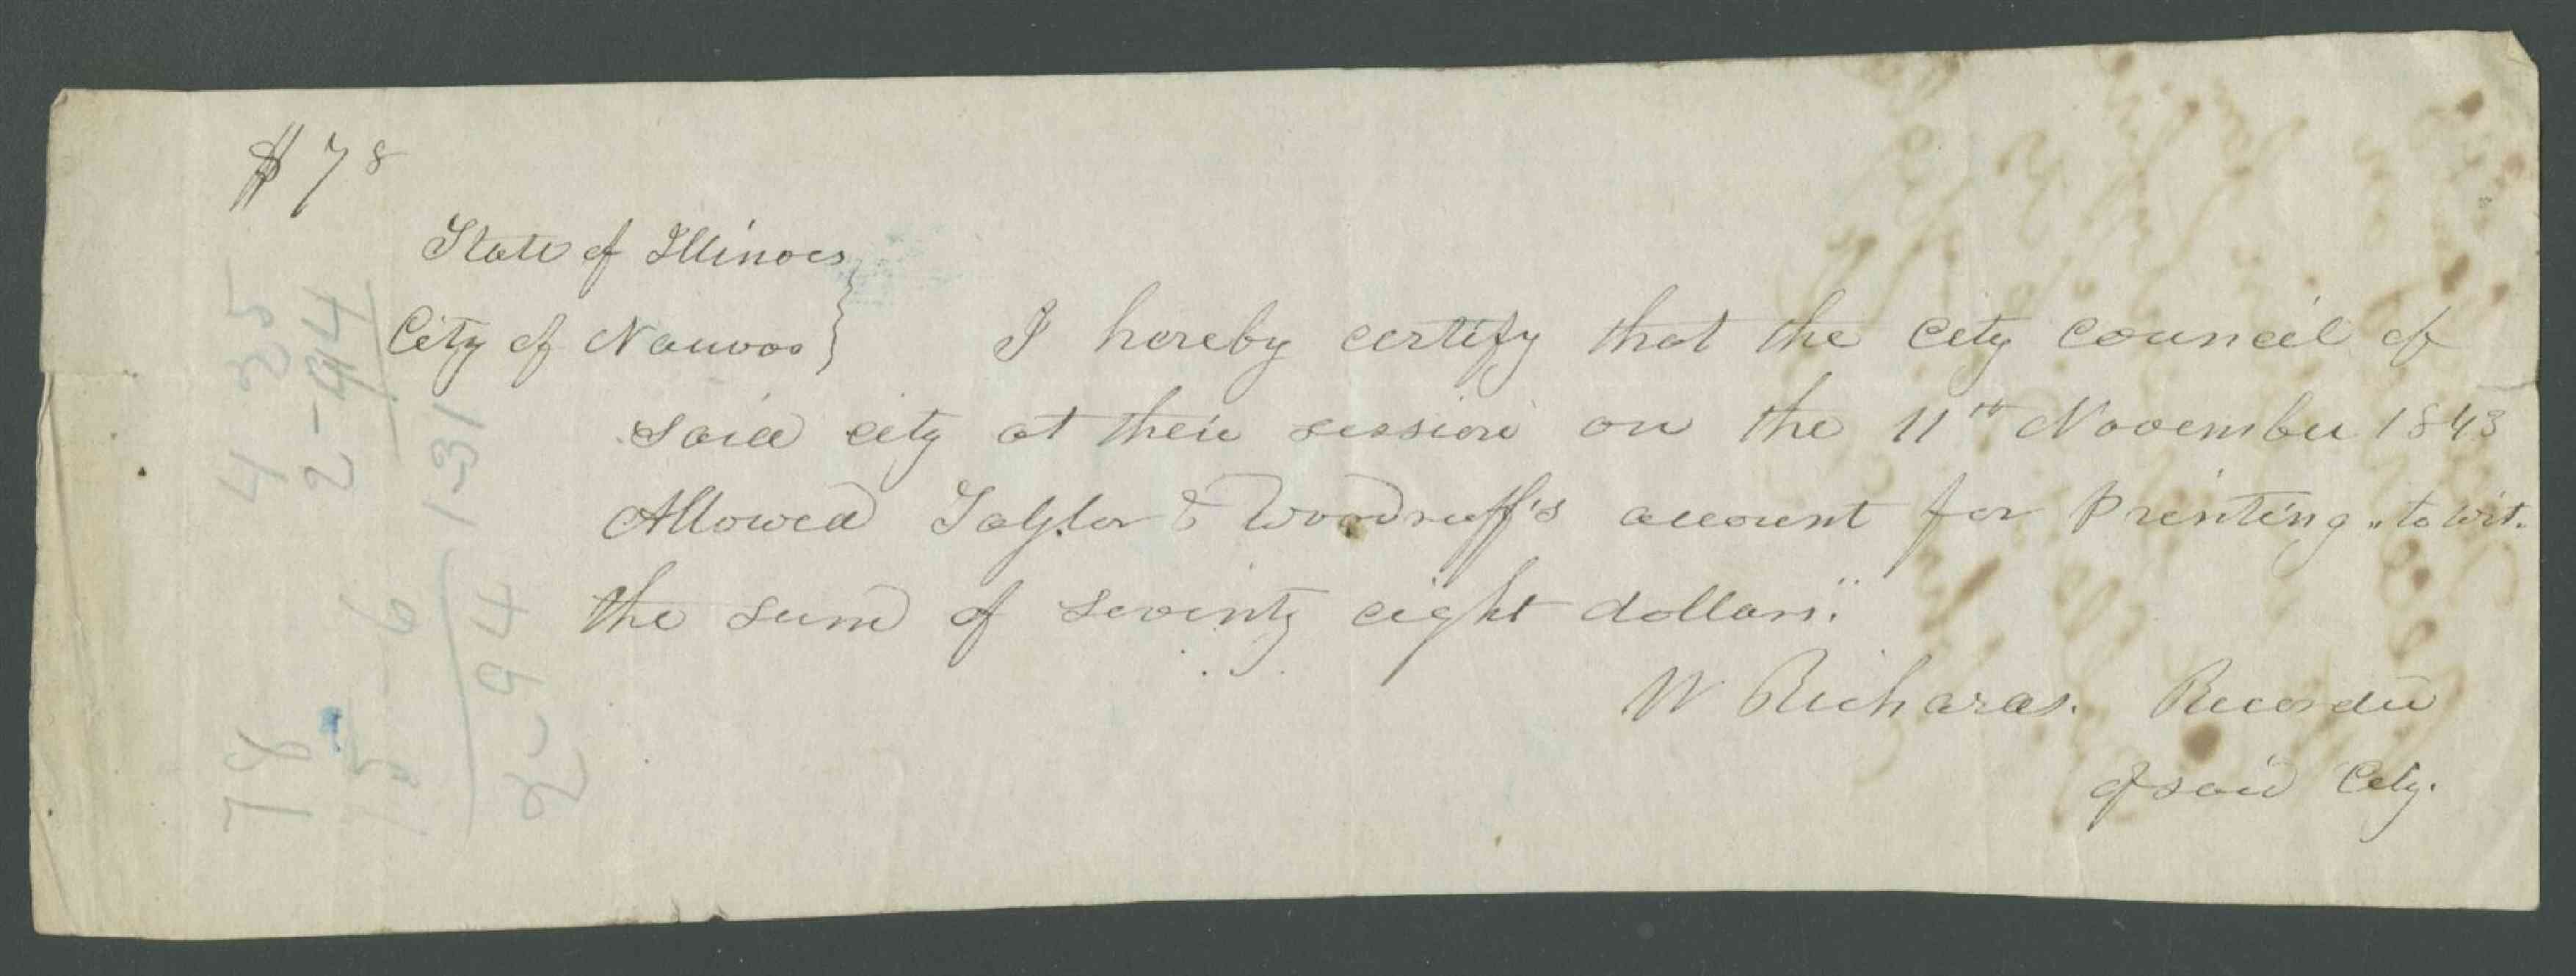 $78
State of Illinois
City of Nauvoo } I hereby certify that the city council of
said city at their session on the 11th November 1843
Allowed Taylor & Woodruff's account for Printing "to wit.
the sum of seventy eight dollars."
W Richards. Recorder
of said City.
4 35
2-94
1-31
6
78
2-94